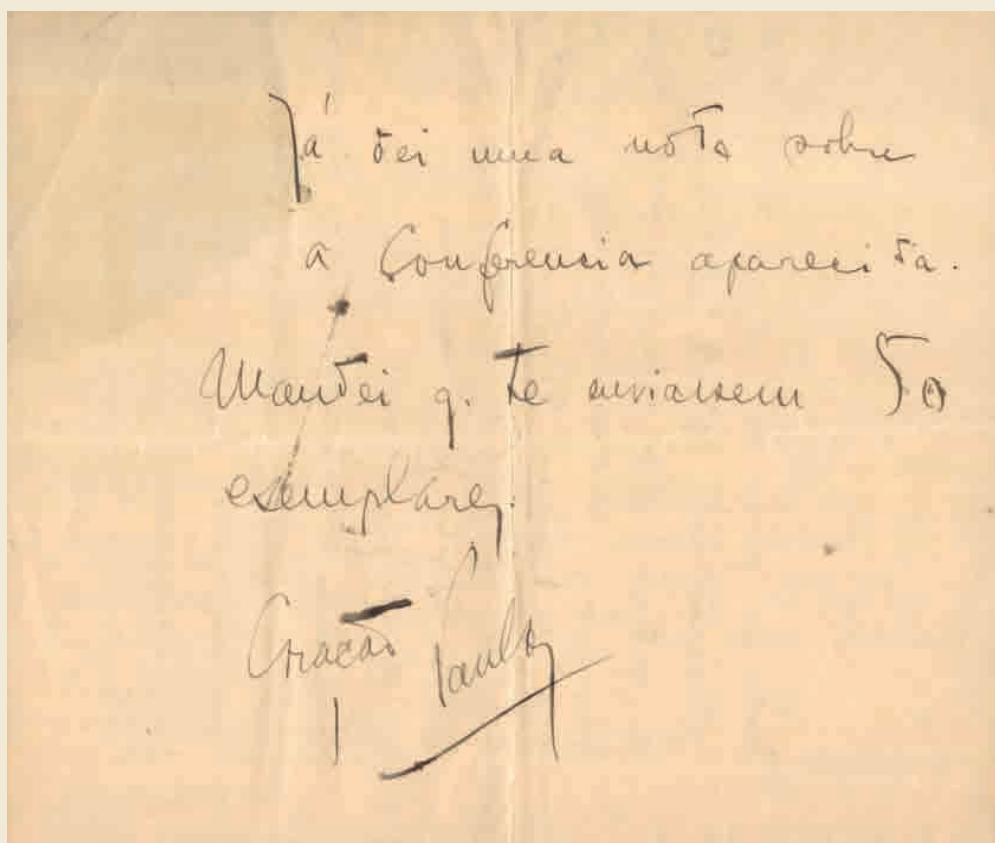 Já dei uma nota sobre
a Conferencia aparecida.
Mandei q. te enviassem 50
exemplares.
Coração
Paulo